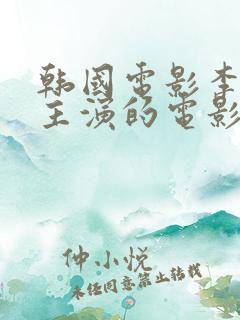 韩國電影李
主演的電影
仲小悦
未经同意禁止转载